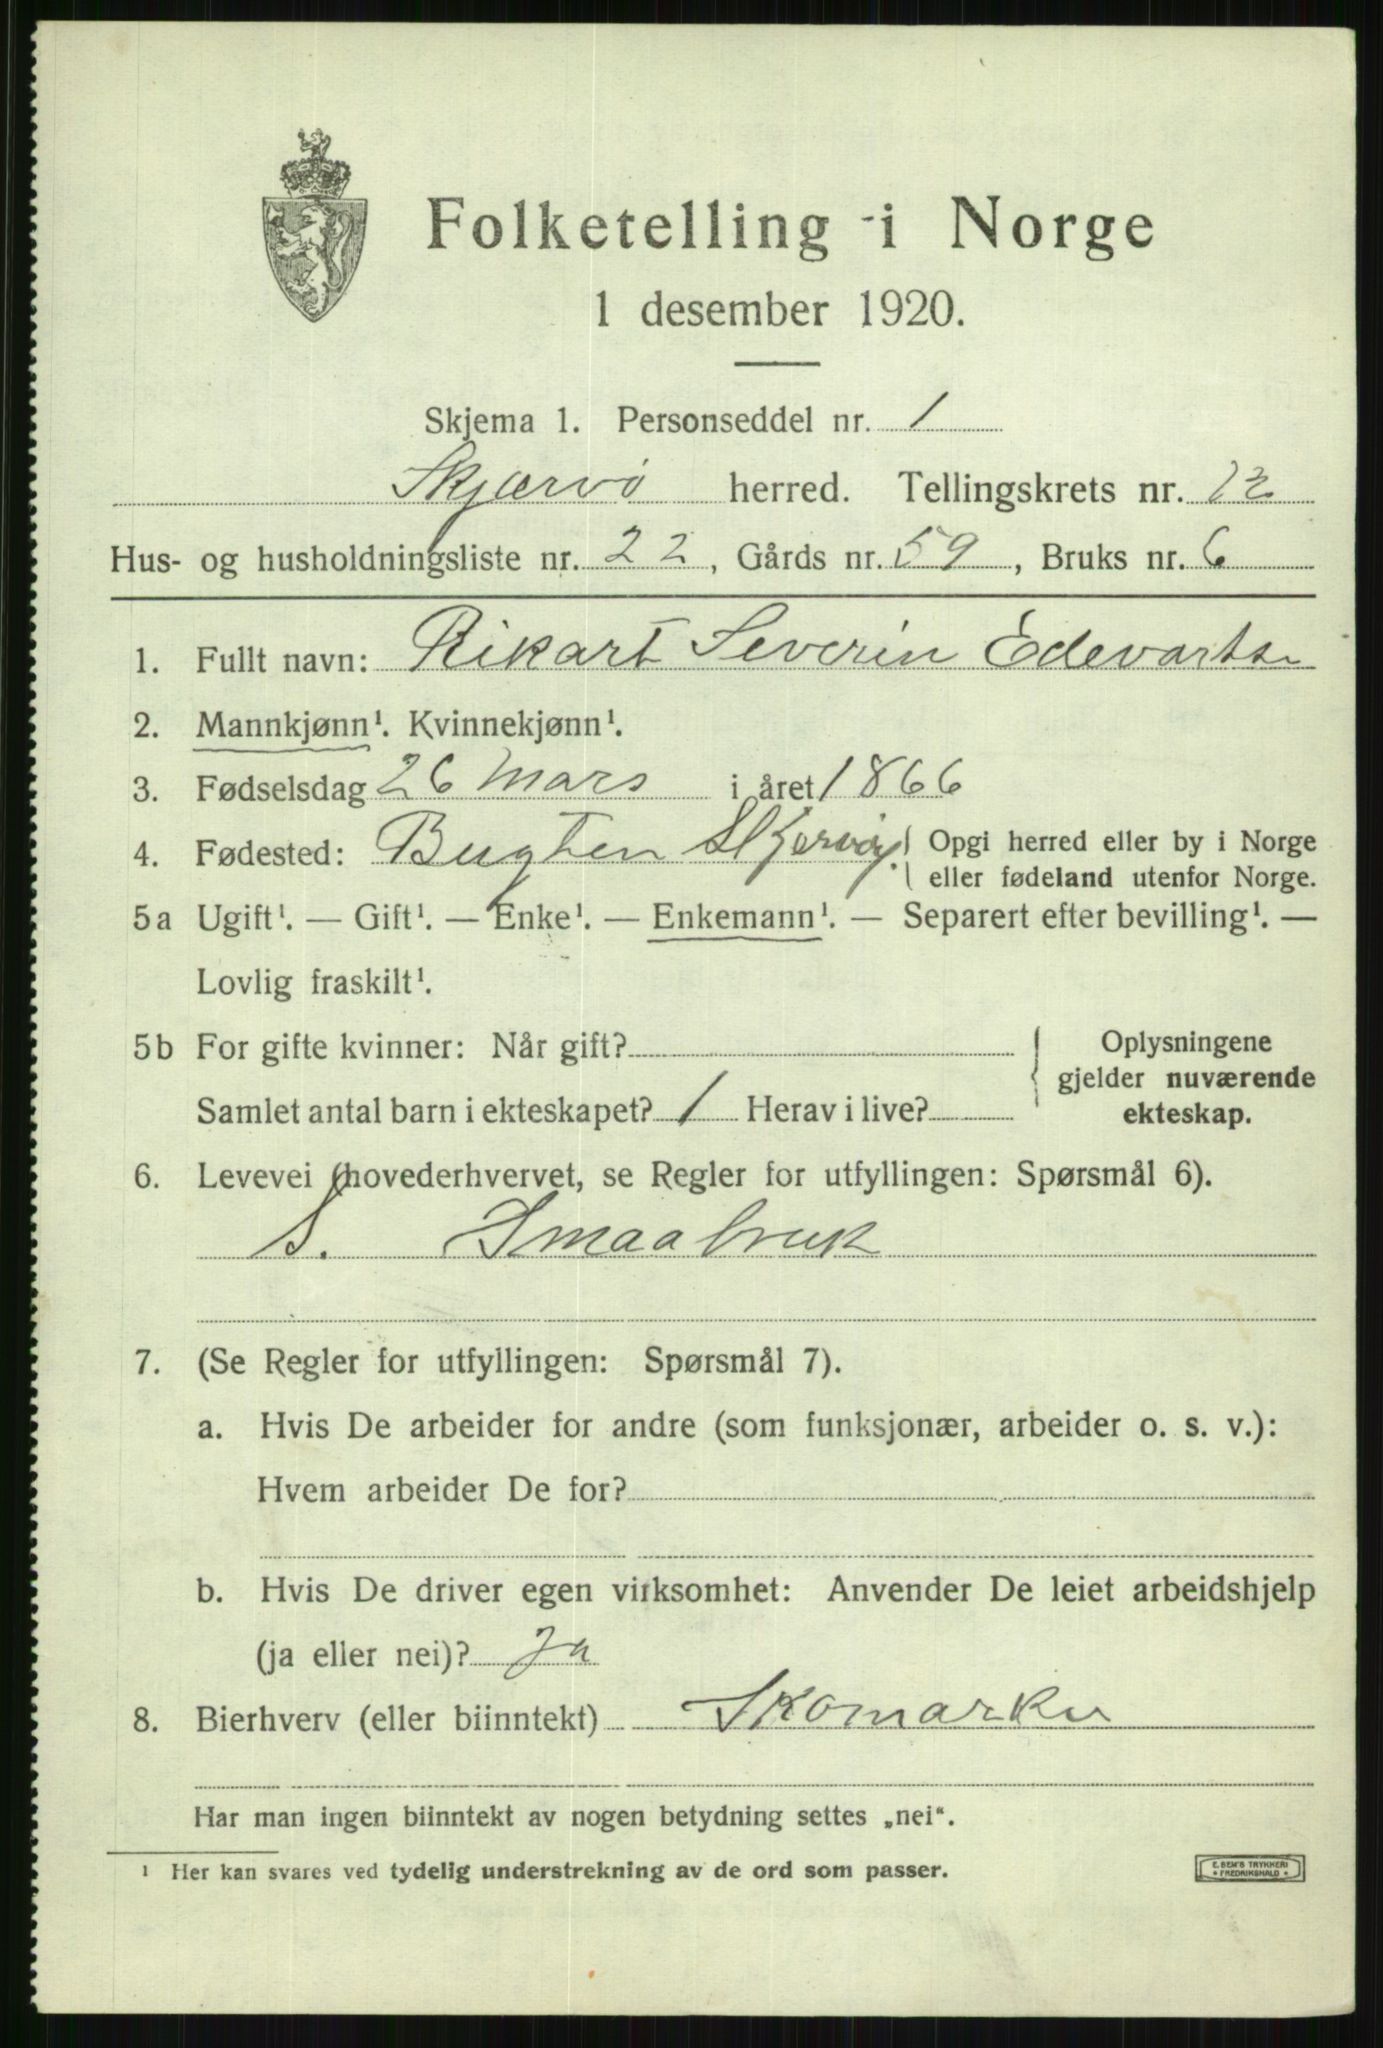 Folketelling i Norge
1 desember 1920.
Skjema 1. Personseddel nr. 1
Skjærvö herred. Tellingskrets nr. 12
Hus- og husholdningsliste nr. 22, Gårds nr. 59, Bruks nr. 6
1. Fullt navn: Rikart Severin Edevarts
2. Mannkjønn¹. Kvinnekjønn¹.
3. Fødselsdag 26 Mars i året 1866
4. Fødested: Bugten Skjervöy. Opgi herred eller by i Norge
eller fødeland utenfor Norge.
5a Ugift¹. — Gift¹. — Enke¹. — Enkemann¹. — Separert efter bevilling¹. —
Lovlig fraskilt¹.
5b For gifte kvinner: Når gift?
Samlet antal barn i ekteskapet? 1 Herav i live?
Oplysningene
gjelder nuværende
ekteskap.
6. Levevei (hovederhvervet, se Regler for utfyllingen: Spørsmål 6).
S. Smaabruk
7. (Se Regler for utfyllingen: Spørsmål 7).
a. Hvis De arbeider for andre (som funksjonær, arbeider o. s. v.):
Hvem arbeider De for?
b. Hvis De driver egen virksomhet: Anvender De leiet arbeidshjelp
(ja eller nei)? Ja
8. Bierhverv (eller biinntekt) Skomarker
Har man ingen biinntekt av nogen betydning settes „nei“.
¹ Her kan svares ved tydelig understrekning av de ord som passer.
E. SEM'S TRYKKERI
• FREDRIKSHALD •